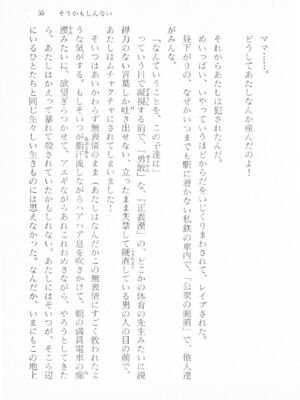 55 そうかもしんない
ママ……。
どうしてあたしなんか産んだのよ！
それからあたしは犯されたんだ。
めいっぱい、いやっていうほどからだをいじくりまわされて、レイプされた。
昼下がりの、なぜかいつまでも駅に着かない私鉄の車内で、「公衆の面前」で、他人達
「なんていうことを、この子達は」
っていう目で凝視する前で、「勇敢」な、「正義漢」の、どこかの体育の先生みたいに説
得力のない言葉しか吐き出せない、立ったまま失禁して硬直している男の人の目の前で、
あたしはムチャクチャにされてしまいました！
そいつはあいかわらず無表情のまま（あたしはなんだかこの無表情にすごく救われたよ
うな気がする。もしそいつが脂汗流しながらハアハア息を吹きかけて、朝の満員電車の痴
漢みたいに、欲望ぎらつかせて、アエギながらあれこれわめきながら、やろうとしてきた
ら、あたしはかまって暴れて殺されていたかもしれない。あたしにはそいつが、そこら辺
にいるひとたちと同じ生々しい生きものには思えなかった。なんだか、いまにもこの地上